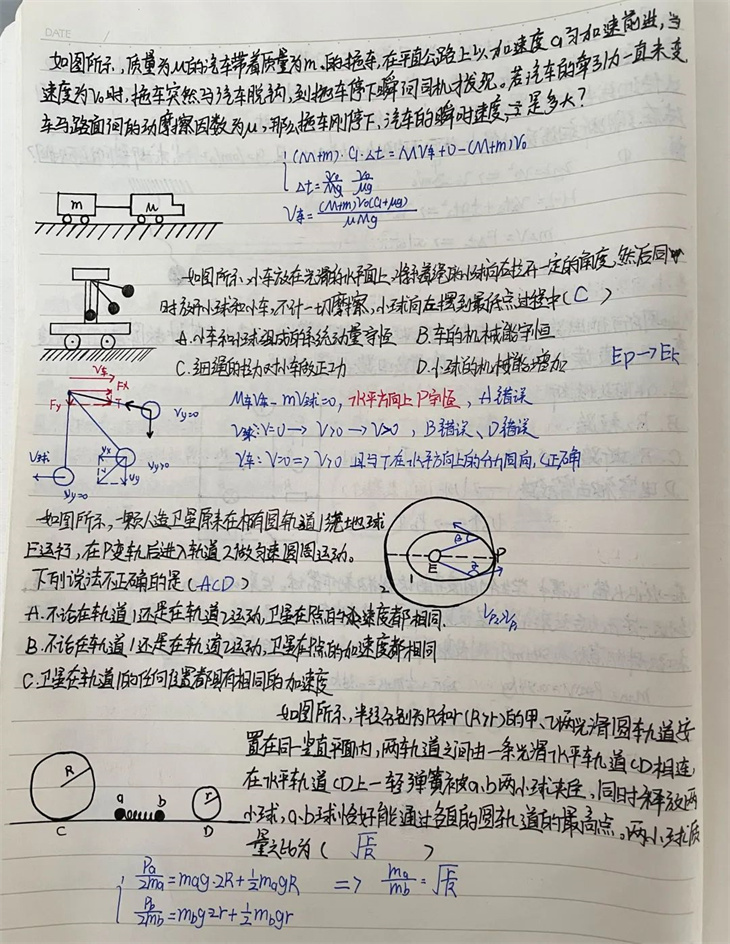 DATE
如图所示,质量为M的汽车带着质量为m的拖车,在平直公路上以加速度a匀加速前进,当
速度为V₀时,拖车突然与汽车脱钩,到拖车停下瞬间司机才发现。若汽车的牵引力一直未变
车与路面间的动摩擦因数为μ,那么拖车刚停下,汽车的瞬时速度是多大?
(M+m)·a·Δt=MV车+0-(M+m)V₀
V车=(M+m)V₀(a+μg)/μMg
m M
如图所示,小车放在光滑的水平面上,将系着绳的小球向右拉开一定的角度,然后同
时放开小球和小车,不计一切摩擦,小球向左摆到最低点过程中(C)
A.小车和小球组成的系统动量守恒 B.车的机械能守恒
C.细绳的拉力对小车做正功 D.小球的机械能增加
Ep→Ek
V车 Fx
Fy T Vy=0
V球 Vx Vy Vy>0
Vy=0
M车V车-mV球=0,水平方向上P守恒,A错误
V球:V=0→V>0→V>0,B错误、D错误
V车:V=0=>V>0 且与T在水平方向上的分力同向,C正确
如图所示,一颗人造卫星原来在椭圆轨道1绕地球
E运行,在P变轨后进入轨道2做匀速圆周运动。
下列说法不正确的是(ACD)
E P 1 2
A.不论在轨道1还是在轨道2运动,卫星在P点的速度都相同.
B.不论在轨道1还是在轨道2运动,卫星在P点的加速度都相同
C.卫星在轨道1的任何位置都具有相同的加速度
如图所示,半径分别为R和r(R>r)的甲、乙两光滑圆轨道安
置在同一竖直平面内,两轨道之间由一条光滑水平轨道CD相连,
在水平轨道CD上一轻弹簧被a、b两小球夹住,同时释放两
小球,a、b球恰好能通过各自的圆轨道的最高点,两小球质
量之比为(√r/R)
R a b r
C D
Pa/2ma=mag·2R+½magR => ma/mb=√r/R
Pb/2mb=mbg2r+½mbgr